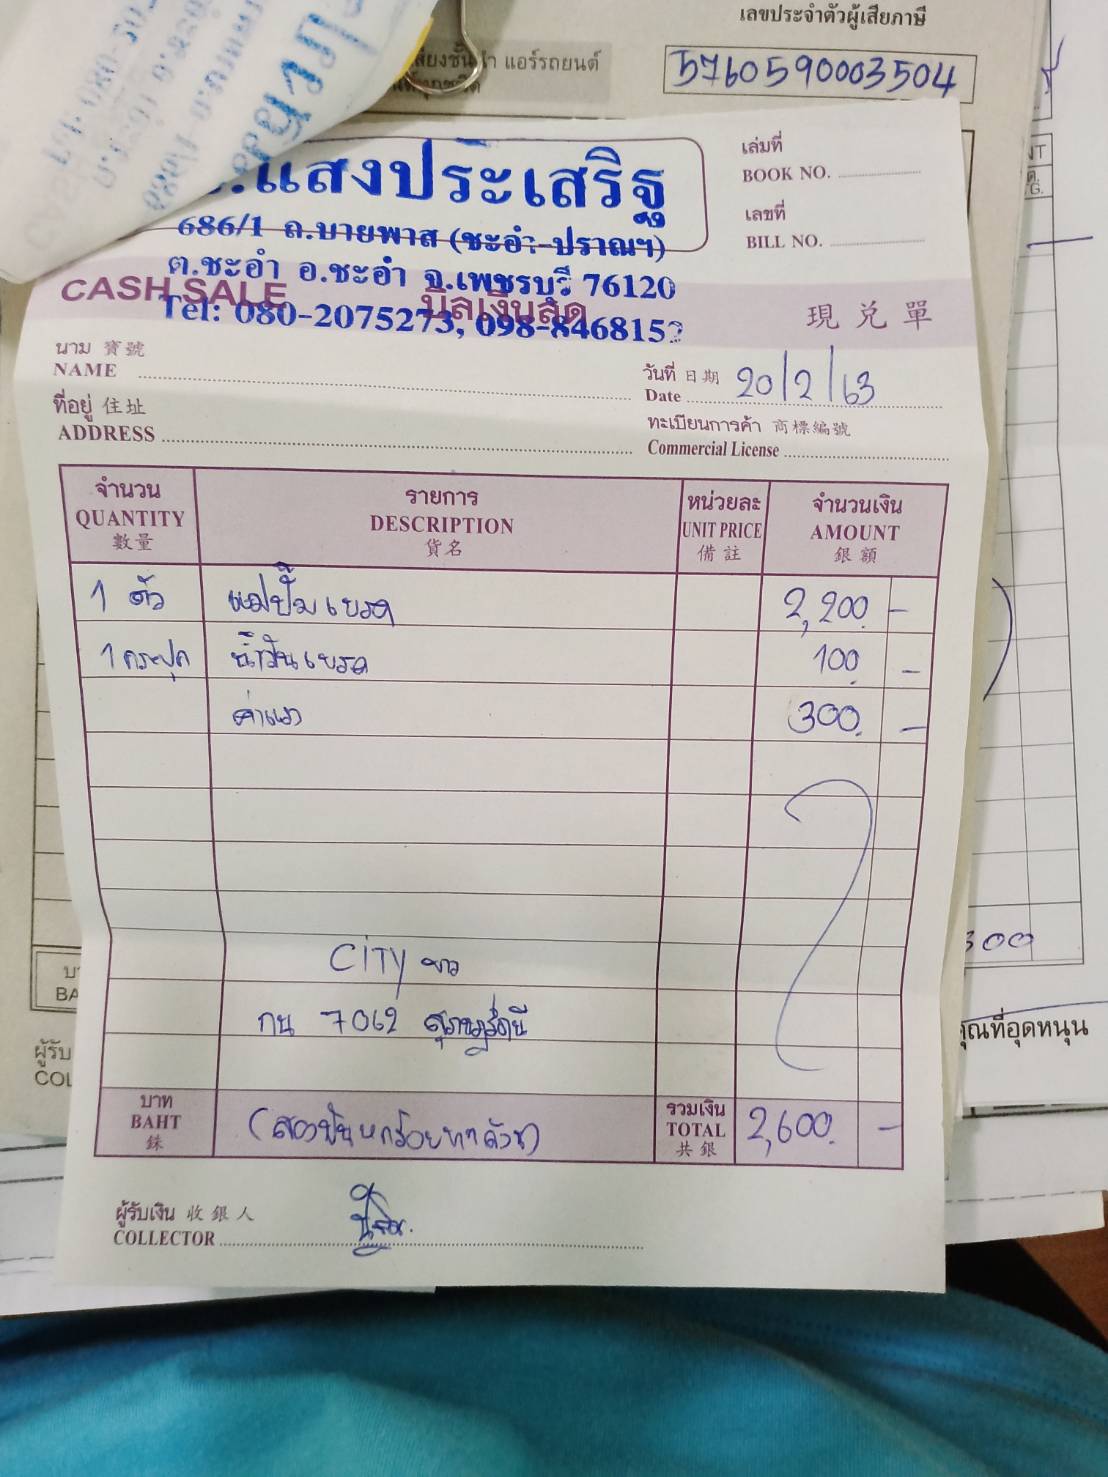 เลขประจำตัวผู้เสียภาษี
5760590003504
แอร์รถยนต์
แสงประเสริฐ
686/1 ถ.บายพาส (ชะอำ-ปราณฯ)
ต.ชะอำ อ.ชะอำ จ.เพชรบุรี 76120
Tel: 080-2075273, 098-846815
เล่มที่
BOOK NO.
เลขที่
BILL NO.
CASH SALE บิลเงินสด 現兑單
นาม 寶號
NAME
วันที่ 日期 20/2/63
Date
ที่อยู่ 住址
ADDRESS
ทะเบียนการค้า 商標編號
Commercial License
จำนวน รายการ หน่วยละ จำนวนเงิน
QUANTITY DESCRIPTION UNIT PRICE AMOUNT
數量 貨名 備註 銀額
1 ตัว แม่ปั๊มเบรค 2,200. -
1 กระปุก น้ำมันเบรค 100. -
ค่าแรง 300. -
CITY ขาว
กน 7062 สุราษฎร์ธานี
บาท
BAHT
銖
(สองพันหกร้อยบาทถ้วน)
รวมเงิน
TOTAL
共銀
2,600. -
ผู้รับเงิน 收銀人
COLLECTOR
300
คุณที่อุดหนุน
ผู้รับ